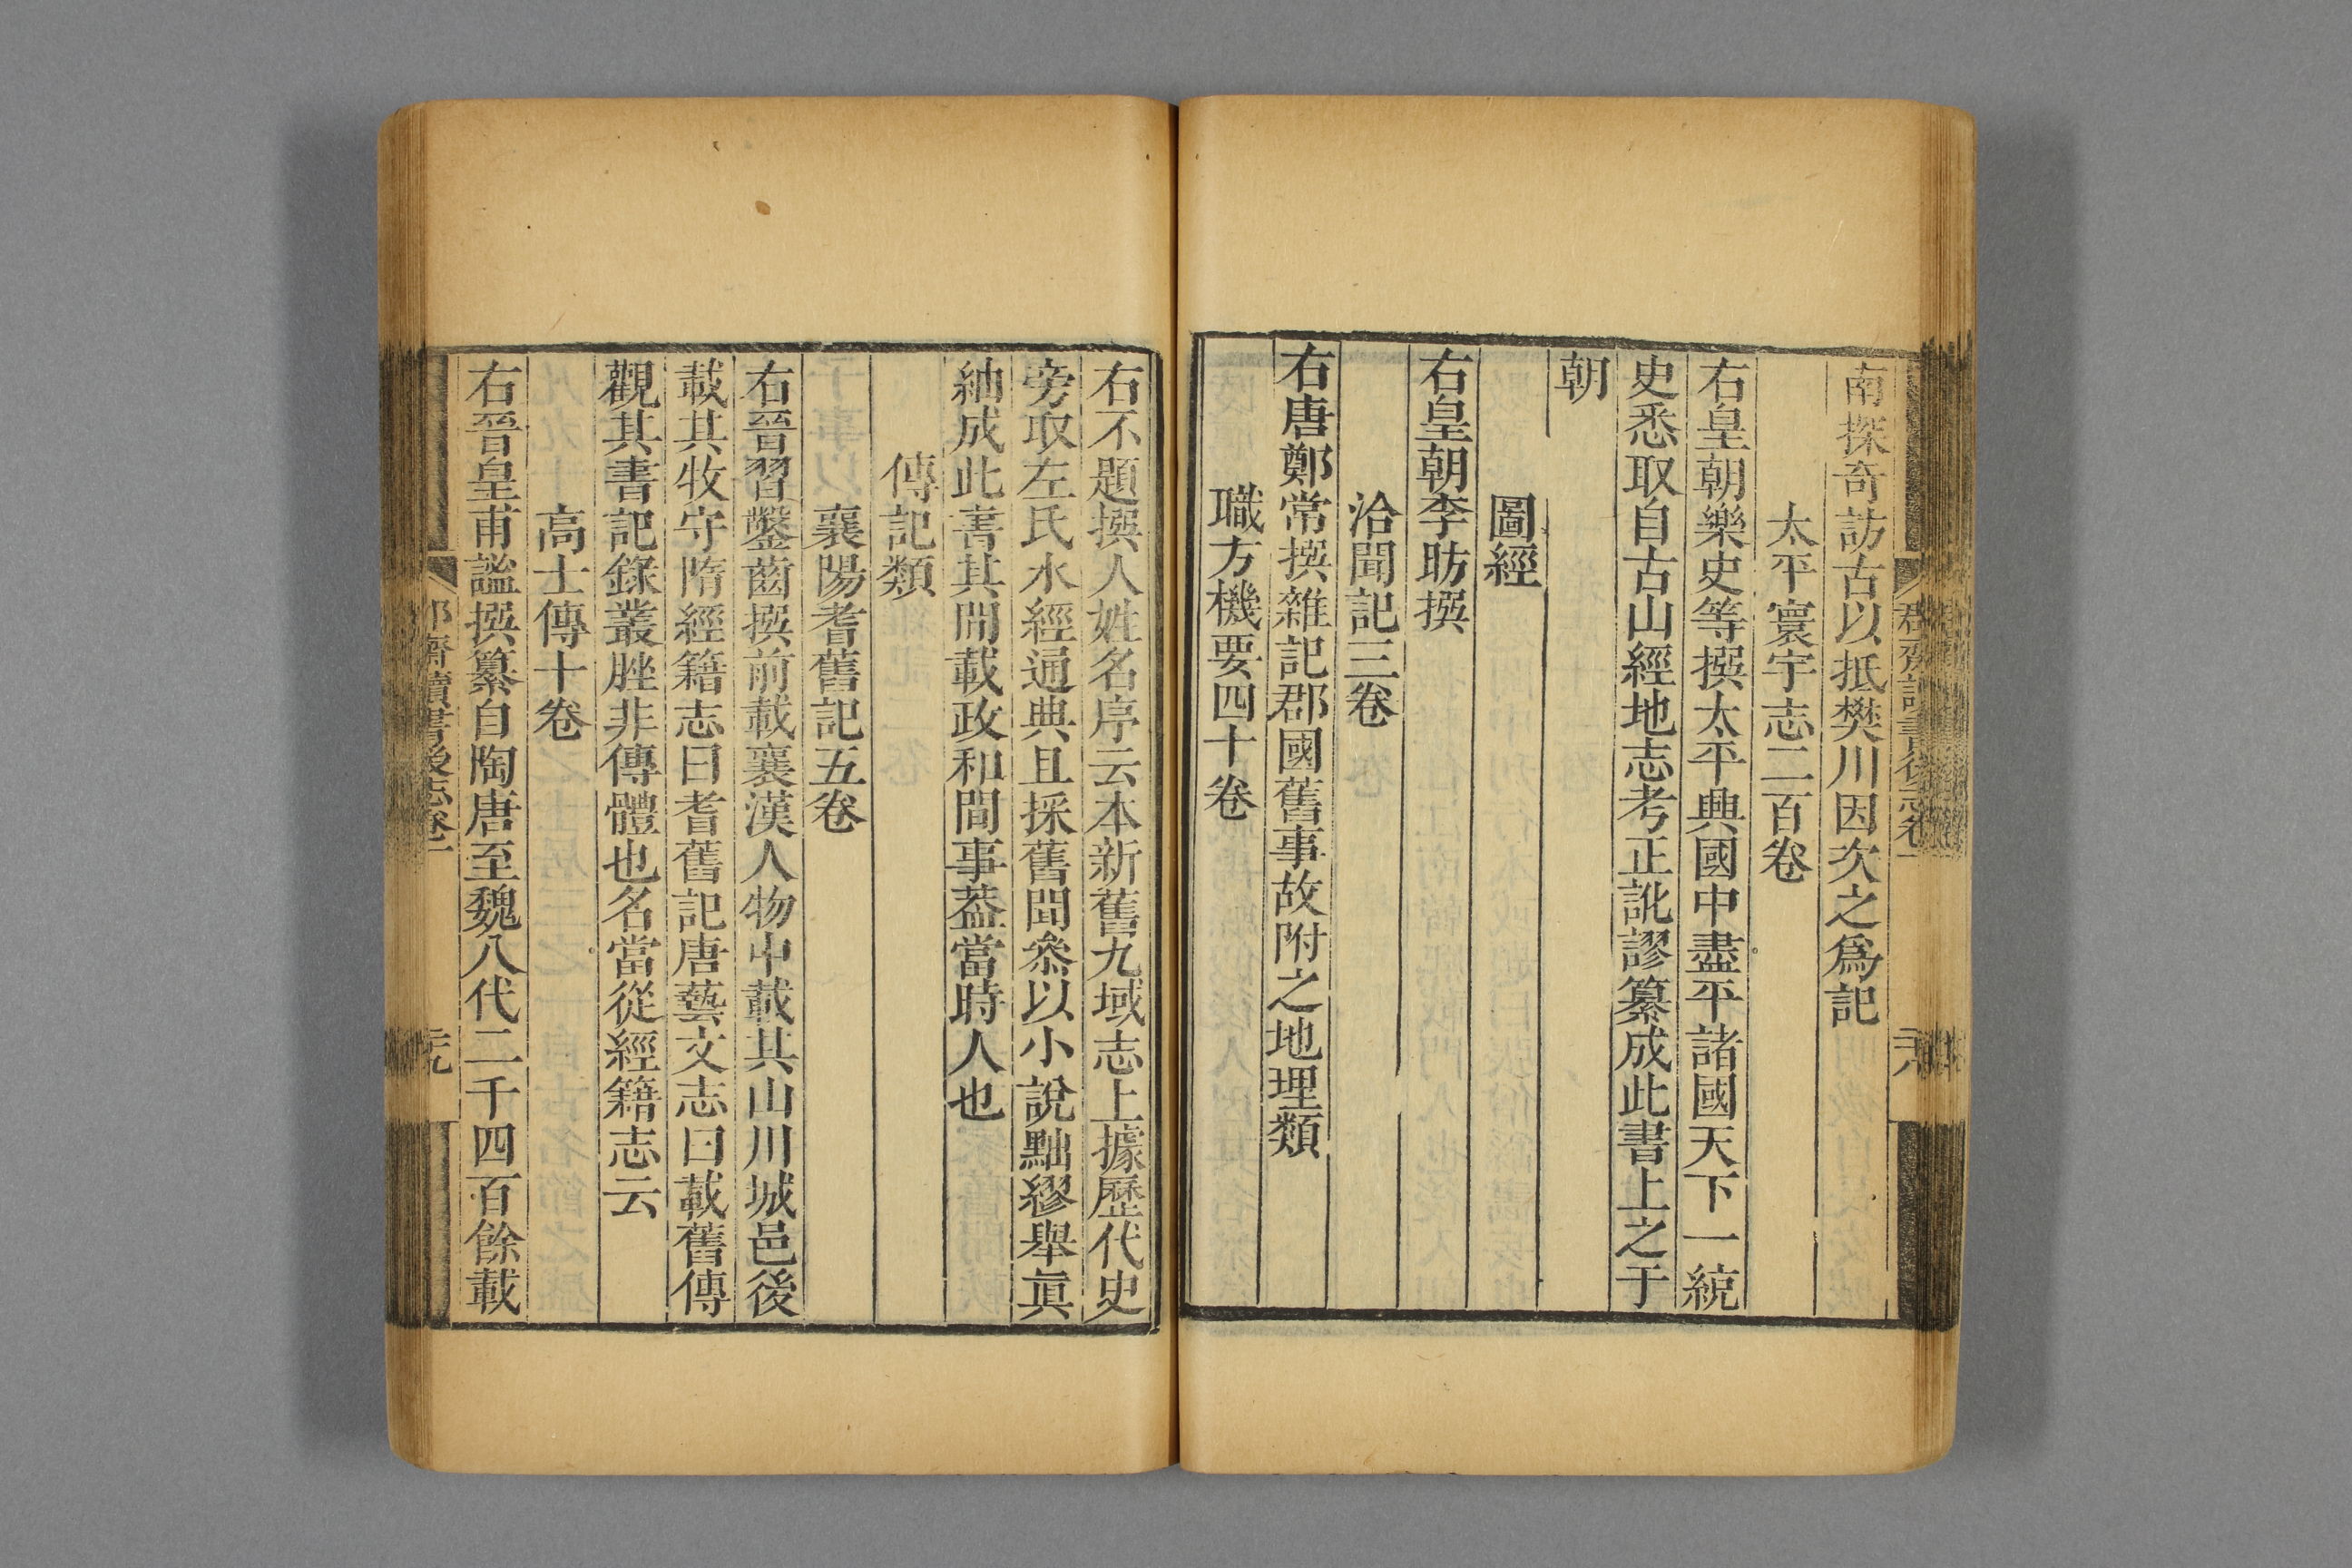 南探奇訪古以抵樊川因次之爲記
太平寰宇志二百卷
右皇朝樂史等撰太平興國中盡平諸國天下一統
史悉取自古山經地志考正訛謬纂成此書上之于
朝
圖經
右皇朝李昉撰
洽聞記三卷
右唐鄭常撰雜記郡國舊事故附之地理類
職方機要四十卷
右不題撰人姓名序云本新舊九域志上據歷代史
旁取左氏水經通典且採舊聞叅以小說黜繆舉眞
紬成此書其間載政和間事葢當時人也
傳記類
襄陽耆舊記五卷
右晉習鑿齒撰前載襄漢人物中載其山川城邑後
載其牧守隋經籍志曰耆舊記唐藝文志曰載舊傳
觀其書記錄叢脞非傳體也名當從經籍志云
高士傳十卷
右晉皇甫謐撰纂自陶唐至魏八代二千四百餘載
郡齋讀書後志卷一